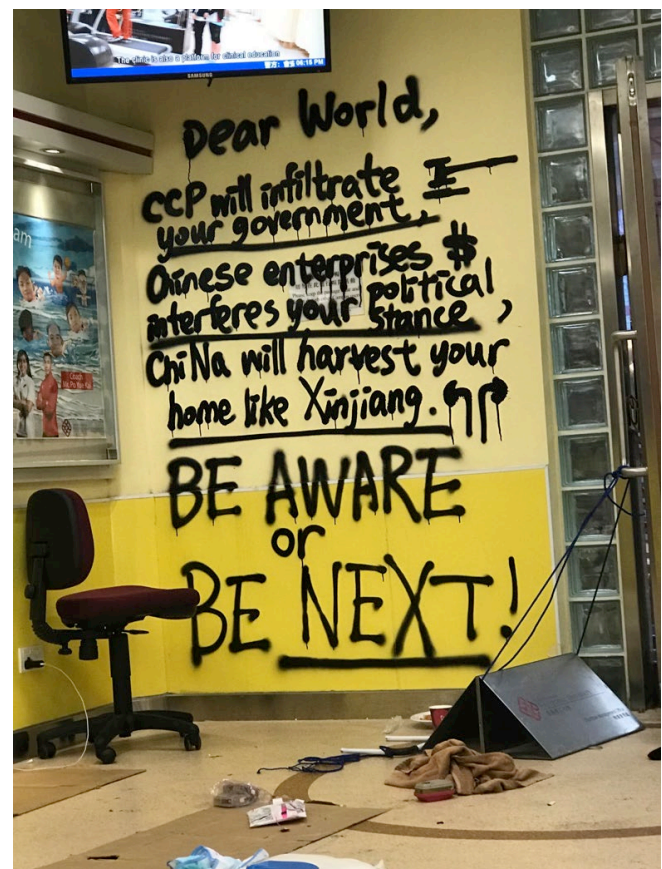 The clinic is also a platform for clinical education
06:15 PM
SAMSUNG
Dear World,
CCP will infiltrate
your government,
Chinese enterprises $
interferes your political
stance,
ChiNa will harvest your
home like Xinjiang.
BE AWARE
or
BE NEXT!
am
Coach